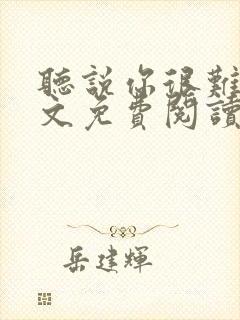 聽說你很難
文免費閱讀
岳建輝